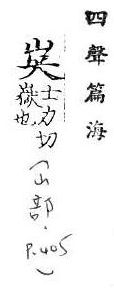 四聲篇海
士力切
獄也
(山部.
P.405)